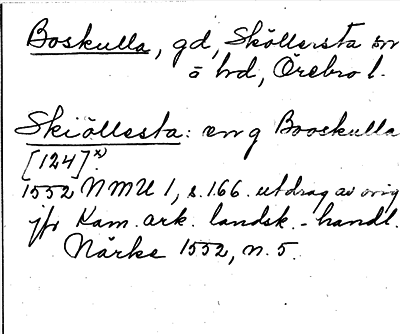 Boskulla, gd, Sköllersta sn
o hd, Örebro l.
Skiöllssta: en g Booskulla
[124]x)
1552 NMU 1, s. 166. utdrag av orig
jfr Kam. ark. landsk.-handl.
Närke 1552, n. 5.